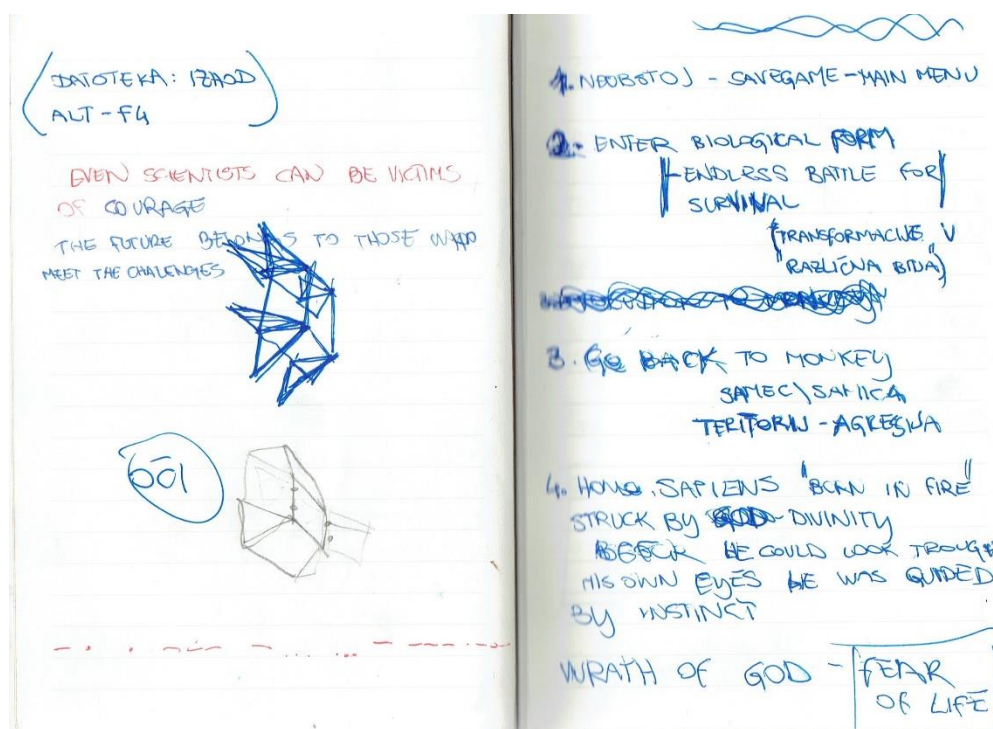 DATOTEKA: IZHOD
ALT-F4
EVEN SCIENTISTS CAN BE VICTIMS
OF COURAGE
THE FUTURE BELONGS TO THOSE WHO
MEET THE CHALENGES
001
1. NEOBSTOJ - SAVEGAME - MAIN MENU
2. ENTER BIOLOGICAL FORM
ENDLESS BATTLE FOR
SURVIVAL
(TRANSFORMACIJE V
"RAZLIČNA BITJA")
3. GO BACK TO MONKEY
SAMEC\SAMICA
TERITORIJ - AGRESIJA
4. HOMO SAPIENS "BORN IN FIRE"
STRUCK BY DIVINITY
HE COULD LOOK TROUGH
HIS OWN EYES HE WAS GUIDED
BY INSTINCT
WRATH OF GOD - FEAR
OF LIFE